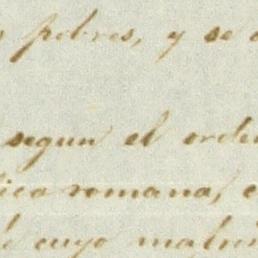 pobres, y se
segun el orde
ica romana, e
de cuyo matrim